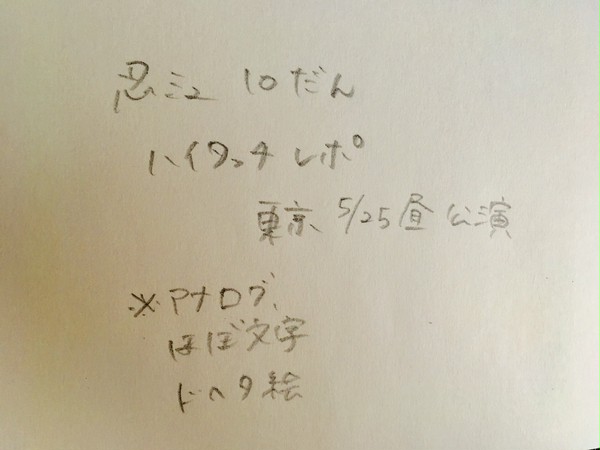 忍ミュ 10だん
ハイタッチ レポ
東京 5/25 昼 公演
※アナログ
ほぼ文字
ドヘタ絵